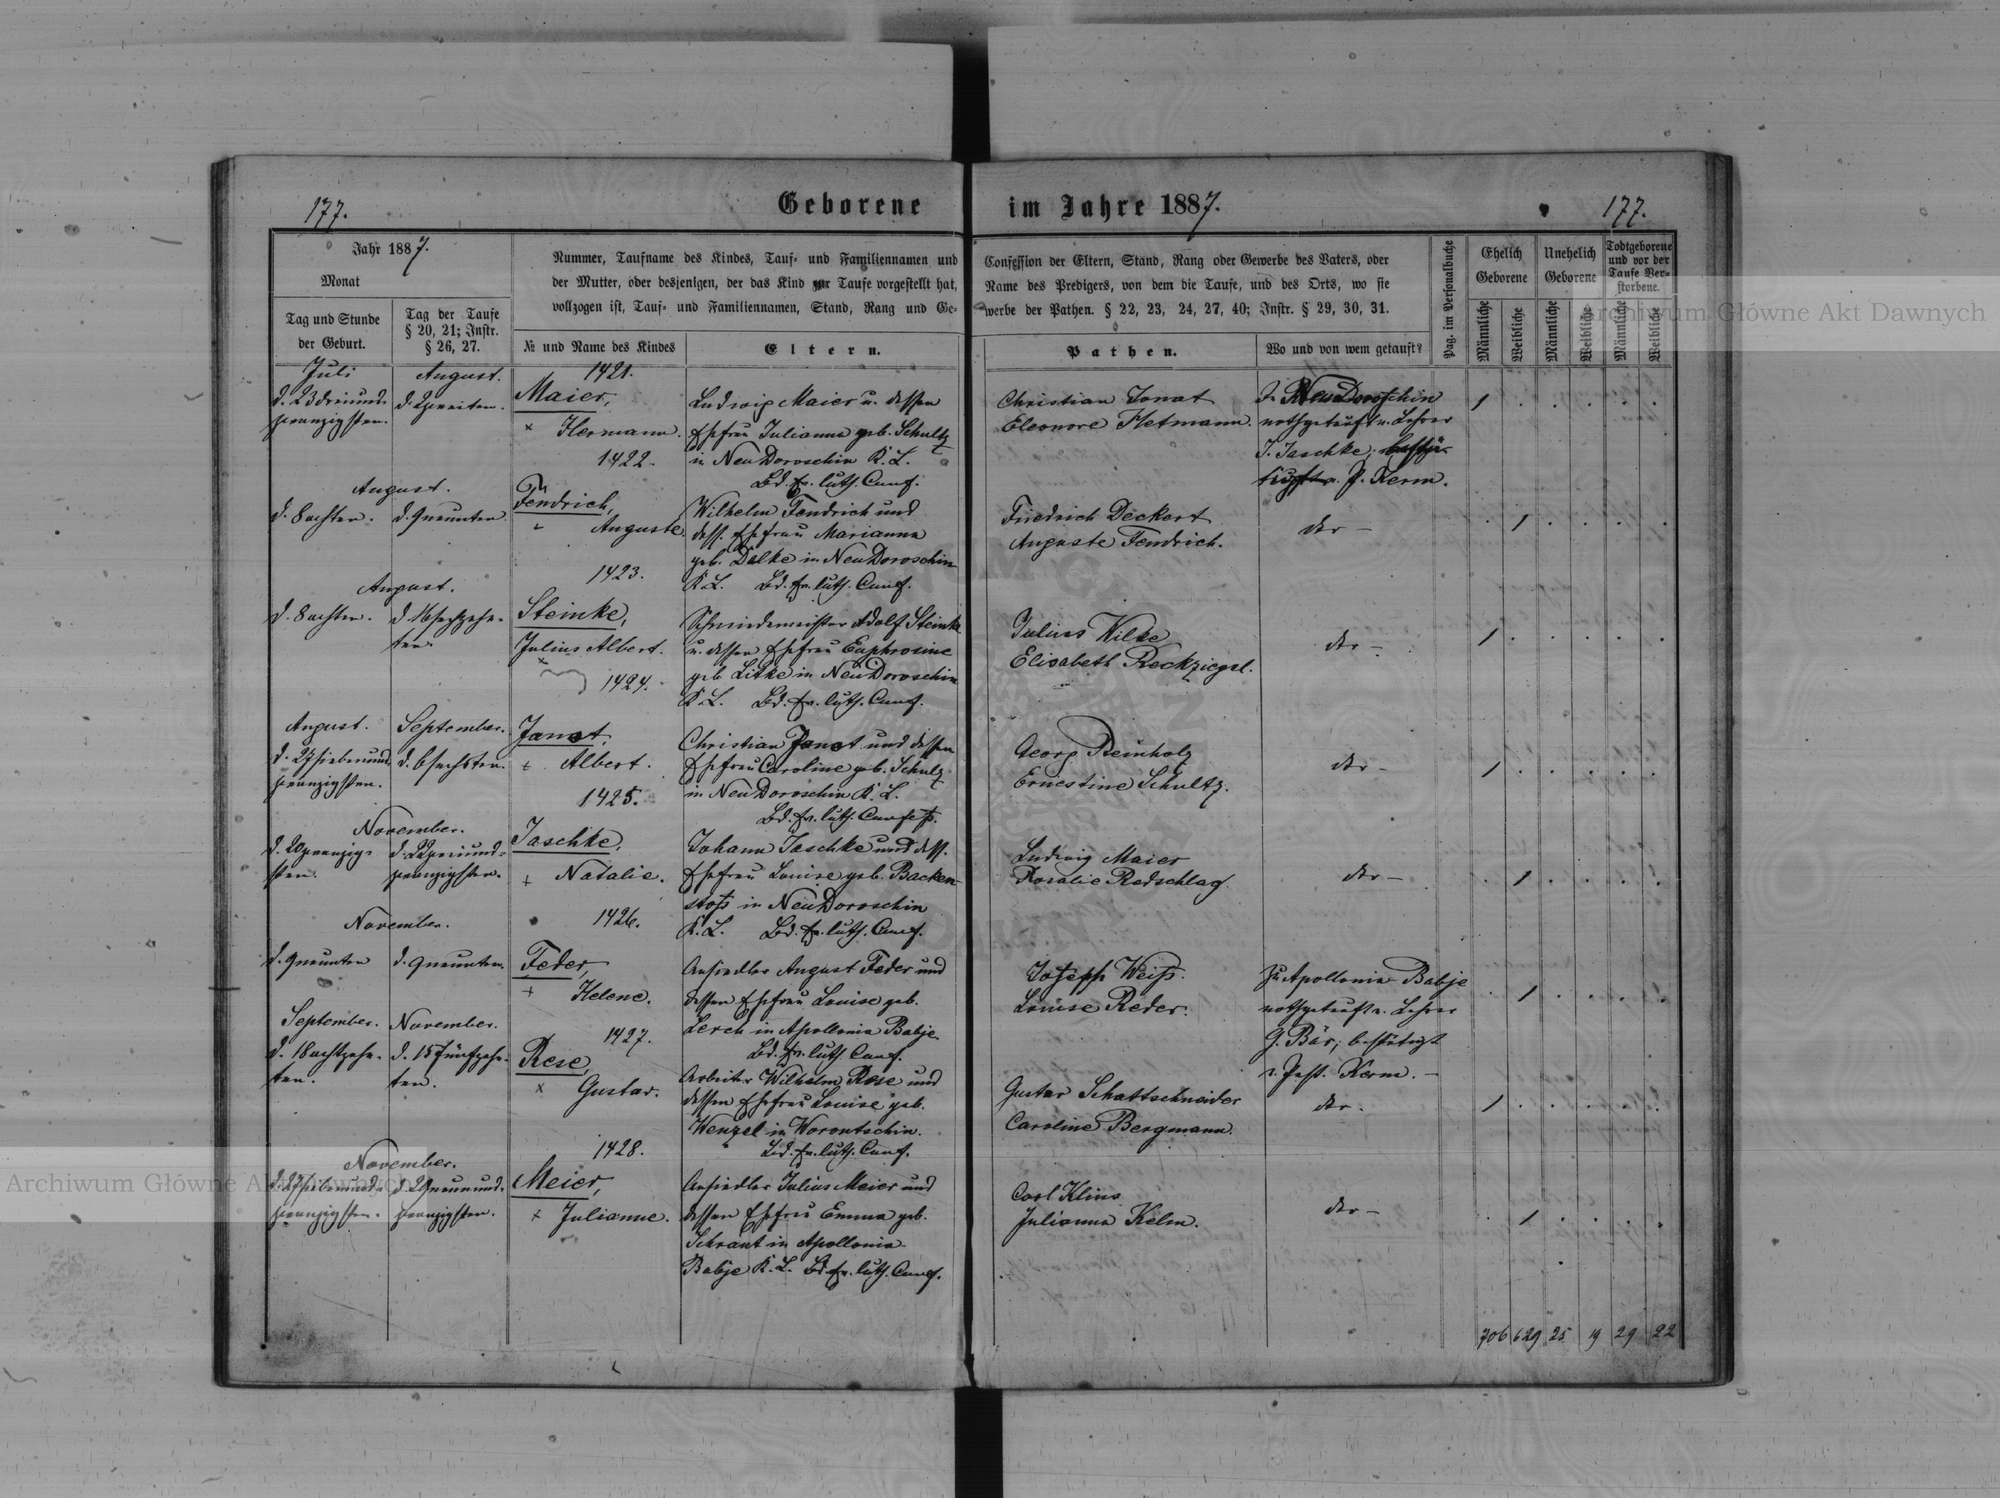 177.
Geborene im Jahre 1887.
177.
Jahr 1887.
Monat
Tag und Stunde
der Geburt.
Tag der Taufe
§ 20, 21; Instr.
§ 26, 27.
Nummer, Taufname des Kindes, Tauf- und Familiennamen und
der Mutter, oder desjenigen, der das Kind zur Taufe vorgestellt hat,
vollzogen ist, Tauf- und Familiennamen, Stand, Rang und Ge-
№ und Name des Kindes
Eltern.
Confession der Eltern, Stand, Rang oder Gewerbe des Vaters, oder
Name des Predigers, von dem die Taufe, und des Orts, wo sie
werbe der Pathen. § 22, 23, 24, 27, 40; Instr. § 29, 30, 31.
Pathen.
Wo und von wem getauft?
Pag. im Personalbuche
Ehelich
Geborene
Unehelich
Geborene
Todtgeborene
und vor der
Taufe Ver-
storbene.
Männliche
Weibliche
Männliche
Weibliche
Männliche
Weibliche
Juli
d. 23 dreiund-
zwanzigsten.
August.
d. 2 zweiten.
1421.
Maier,
× Hermann.
Ludwig Maier u. dessen
Ehefrau Julianna geb. Schultz
in Neu Doroschin K. L.
Bd. ev. luth. Conf.
Christian Jonat
Eleonore Hetmann.
Neu Doroschin
nothgetauft v. Lehrer
J. Jaschke;
v. P. Kerm.
1
August.
d. 8 achten.
d. 9 neunten
1422.
Fendrich,
Auguste
Wilhelm Fendrich und
dess. Ehefrau Marianna
geb. Dalke in Neu Doroschin
K. L. Bd. ev. luth. Conf.
Friedrich Deckert
Auguste Fendrich.
der –
1
August.
d. 8 achten.
d. 16 sechzehn-
ten.
1423.
Steinke,
Julius Albert.
×
Schmiedemeister Adolf Steinke
u. dessen Ehefrau Euphrosine
geb. Litke in Neu Doroschin
K. L. Bd. ev. luth. Conf.
Julius Wilke
Elisabeth Reckziegel.
der –
1
August.
d. 27 siebenund
zwanzigsten.
September.
d. 6 sechsten.
1424.
Janot,
Albert.
Christian Janot und dessen
Ehefrau Caroline geb. Schulz
in Neu Doroschin K. L.
Bd. ev. luth. Confess.
Georg Reinholz
Ernestine Schultz.
der –
1
November.
d. 20 zwanzig-
sten.
d. 22 zweiund-
zwanzigsten.
1425.
Jaschke,
+ Natalie.
Johann Jaschke und dess.
Ehefrau Louise geb. Backen-
stoss in Neu Doroschin
K. L. Bd. ev. luth. Conf.
Ludwig Maier
Rosalie Radschlag.
der –
1
November.
d. 9 neunten
d. 9 neunten.
1426.
Feder,
+ Helene.
Ansiedler August Feder und
dessen Ehefrau Louise geb.
Lerch in Apollonia Babje.
Bd. ev. luth. Conf.
Joseph Weiss.
Louise Reder.
Zu Apollonia Babje
nothgetauft v. Lehrer
G. Bär; bestätigt
v. Past. Kerm. –
1
September.
d. 18 achtzehn-
ten.
November.
d. 15 fünfzehn-
ten.
1427.
Rese,
× Gustav.
Arbeiter Wilhelm Rese und
dessen Ehefrau Louise geb.
Wenzel in Worontschin.
Bd. ev. luth. Conf.
Gustav Schattschneider
Caroline Bergmann.
der.
1
November.
d. 27 siebenund-
zwanzigsten.
d. 29 neunund-
zwanzigsten.
1428.
Meier,
× Julianne.
Ansiedler Julius Meier und
dessen Ehefrau Emma geb.
Schrant in Apollonia
Babje K. L. Bd. ev. luth. Conf.
Carl Klins
Julianna Kelm.
der –
1
706 629 25 19 29 22
Archiwum Główne Akt Dawnych
Archiwum Główne Akt Dawnych